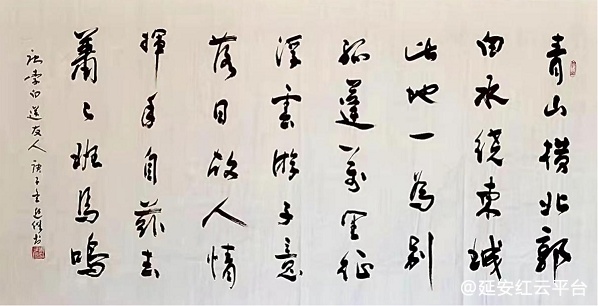 青山横北郭
白水绕東城
此地一為别
孤蓬萬里征
浮雲游子意
落日故人情
揮手自兹去
蕭々班馬鳴
李白送友人 庚子 书
@延安红云平台